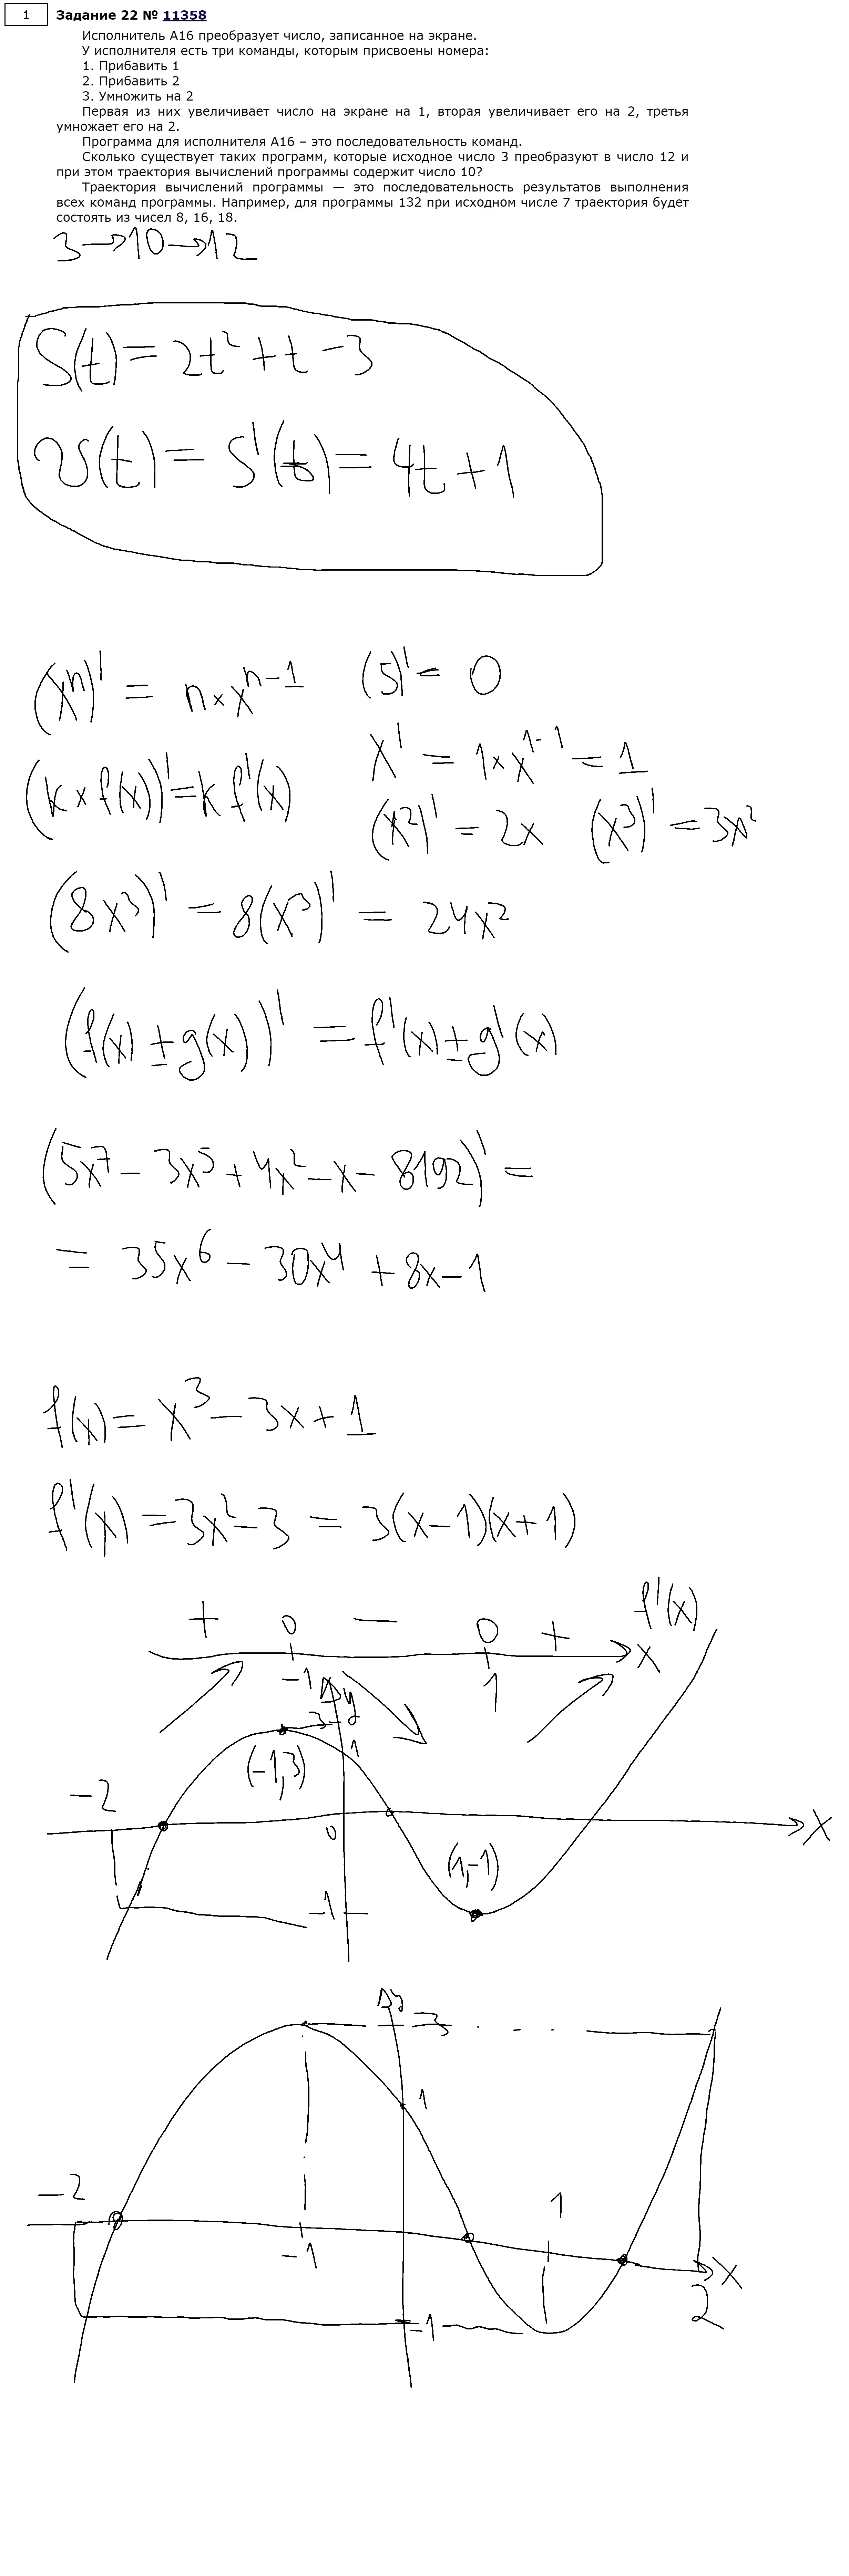 1 Задание 22 № 11358
Исполнитель А16 преобразует число, записанное на экране.
У исполнителя есть три команды, которым присвоены номера:
1. Прибавить 1
2. Прибавить 2
3. Умножить на 2
Первая из них увеличивает число на экране на 1, вторая увеличивает его на 2, третья
умножает его на 2.
Программа для исполнителя А16 – это последовательность команд.
Сколько существует таких программ, которые исходное число 3 преобразуют в число 12 и
при этом траектория вычислений программы содержит число 10?
Траектория вычислений программы — это последовательность результатов выполнения
всех команд программы. Например, для программы 132 при исходном числе 7 траектория будет
состоять из чисел 8, 16, 18.
3→10→12
S(t) = 2t² + t - 3
v(t) = S'(t) = 4t + 1
(xⁿ)' = n × xⁿ⁻¹ (5)' = 0
x' = 1 × x¹⁻¹ = 1
(k × f(x))' = k f'(x)
(x²)' = 2x (x³)' = 3x²
(8x³)' = 8(x³)' = 24x²
(f(x) ± g(x))' = f'(x) ± g'(x)
(5x⁷ - 3x⁵ + 4x² - x - 8192)' =
= 35x⁶ - 30x⁴ + 8x - 1
f(x) = x³ - 3x + 1
f'(x) = 3x² - 3 = 3(x-1)(x+1)
f'(x)
+ 0 — 0 +
x
-1 1
y
3
1
(-1,3)
-2
0
x
(1,-1)
-1
y
3
1
-2
1
-1
x
2
-1